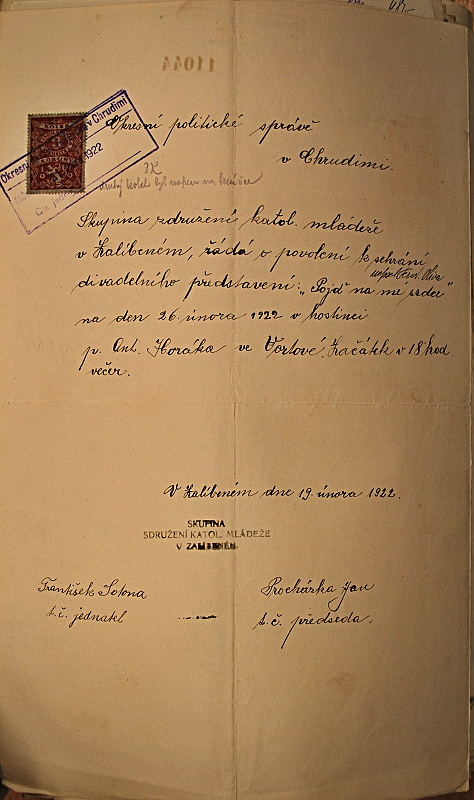 11044
Okresní politické správě
v Chrudimi.
Okresní v Chrudimi
1922
3K
druhý kolek byl
Skupina združení katol. mládeže
v Zalibeném, žádá o povolení k sehrání
divadelního představení: „Pojď na mé srdce"
na den 26. února 1922 v hostinci
p. Ant. Horáka ve Vortové. Začátek v 18 hod.
večer.
V Zalibeném dne 19. února 1922.
SKUPINA
SDRUŽENÍ KATOL. MLÁDEŽE
V ZALIBENÉM.
František Sotona
t. č. jednatel
Procházka Jan
t. č. předseda.